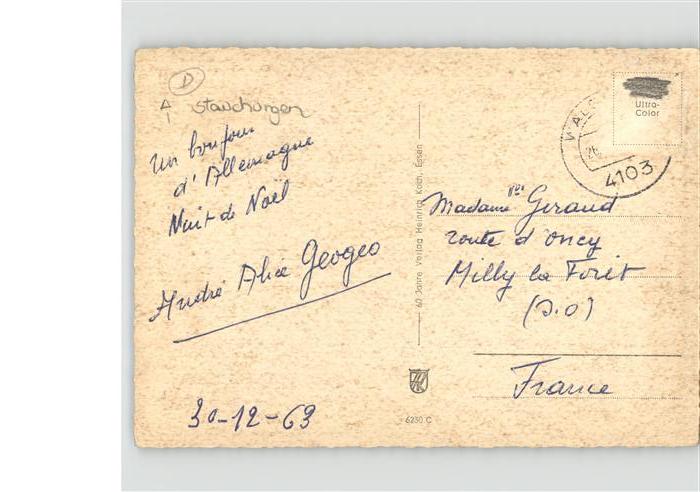 D
Stauchurgen
Un bonjour
d'Allemagne
Nuit de Noël
André Alice Georges
30-12-63
60 Jahre Verlag Heinrich Koch, Essen
6230 C
Ultra-
Color
WALS
26
4103
Madame Vve Geraud
route d'oncy
Milly la Forêt
(S.O)
France